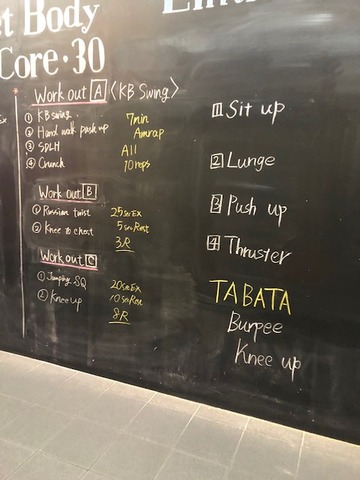 et Body
Core·30
Work out A 〈KB Swing〉
① KB swing.
② Hand walk push up
③ SDLH
④ Crunch
7min
Amrap
All
10reps
Work out B
① Russian twist
② Knee to chest
25sec Ex
5sec Rest
3R
Work out C
① Jumping SQ
② Knee up
20sec Ex
10sec Rest
8R
1 Sit up
2 Lunge
3 Push up
4 Thruster
TABATA
Burpee
Knee up